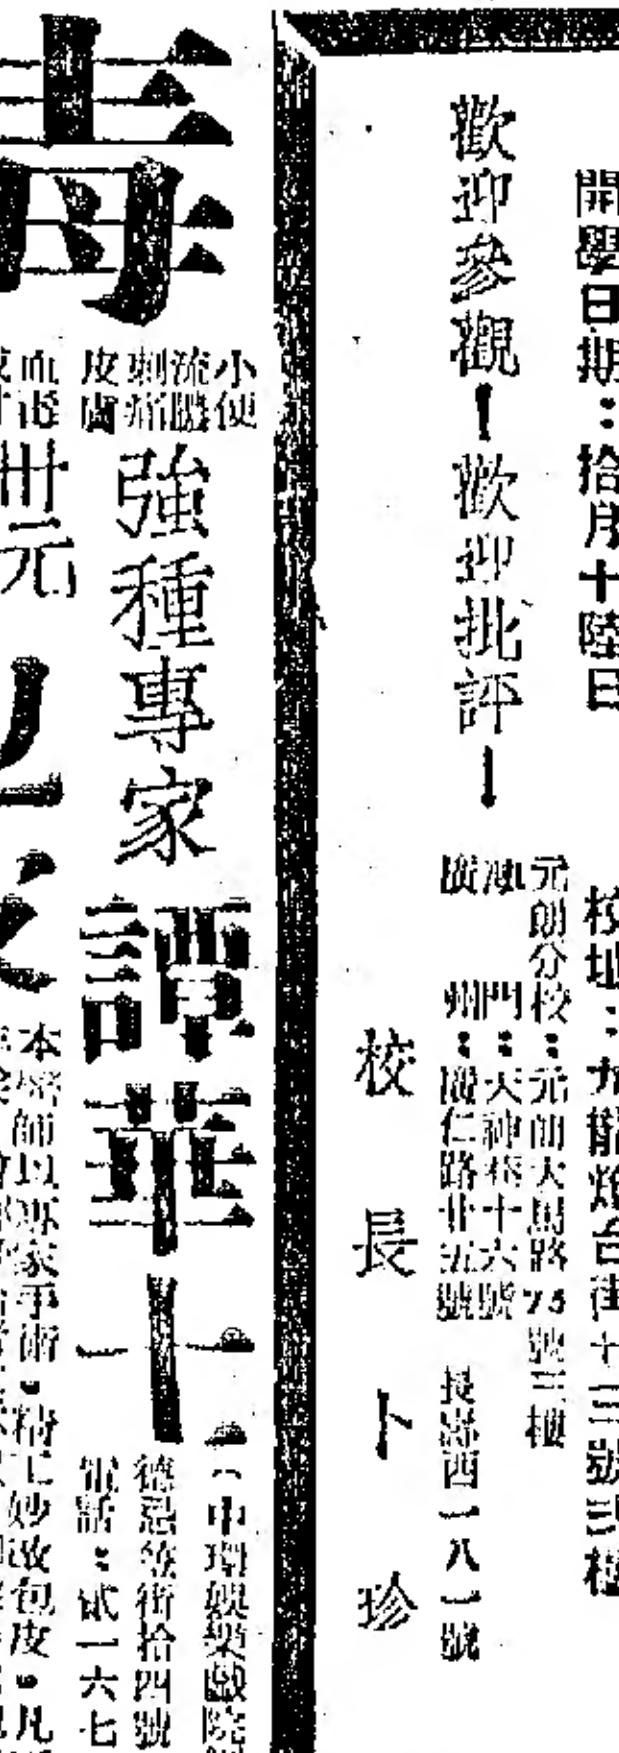 開學日期：拾月十陸日
校址：九龍炮台街十三號弍樓
歡迎參觀！歡迎批評！
元朗分校：元朗大馬路75號三樓
澳門：天神巷十六號
廣州：廣仁路廿五號 長壽西一八一號
校長卜珍
毒
小便
流膿
刺痛
皮膚
血毒
強種專家
譚華士
（中環娛樂戲院
德忌笠街拾四號
電話：弍一六七
卅元
本醫師以專家手術·精工妙改包皮·凡